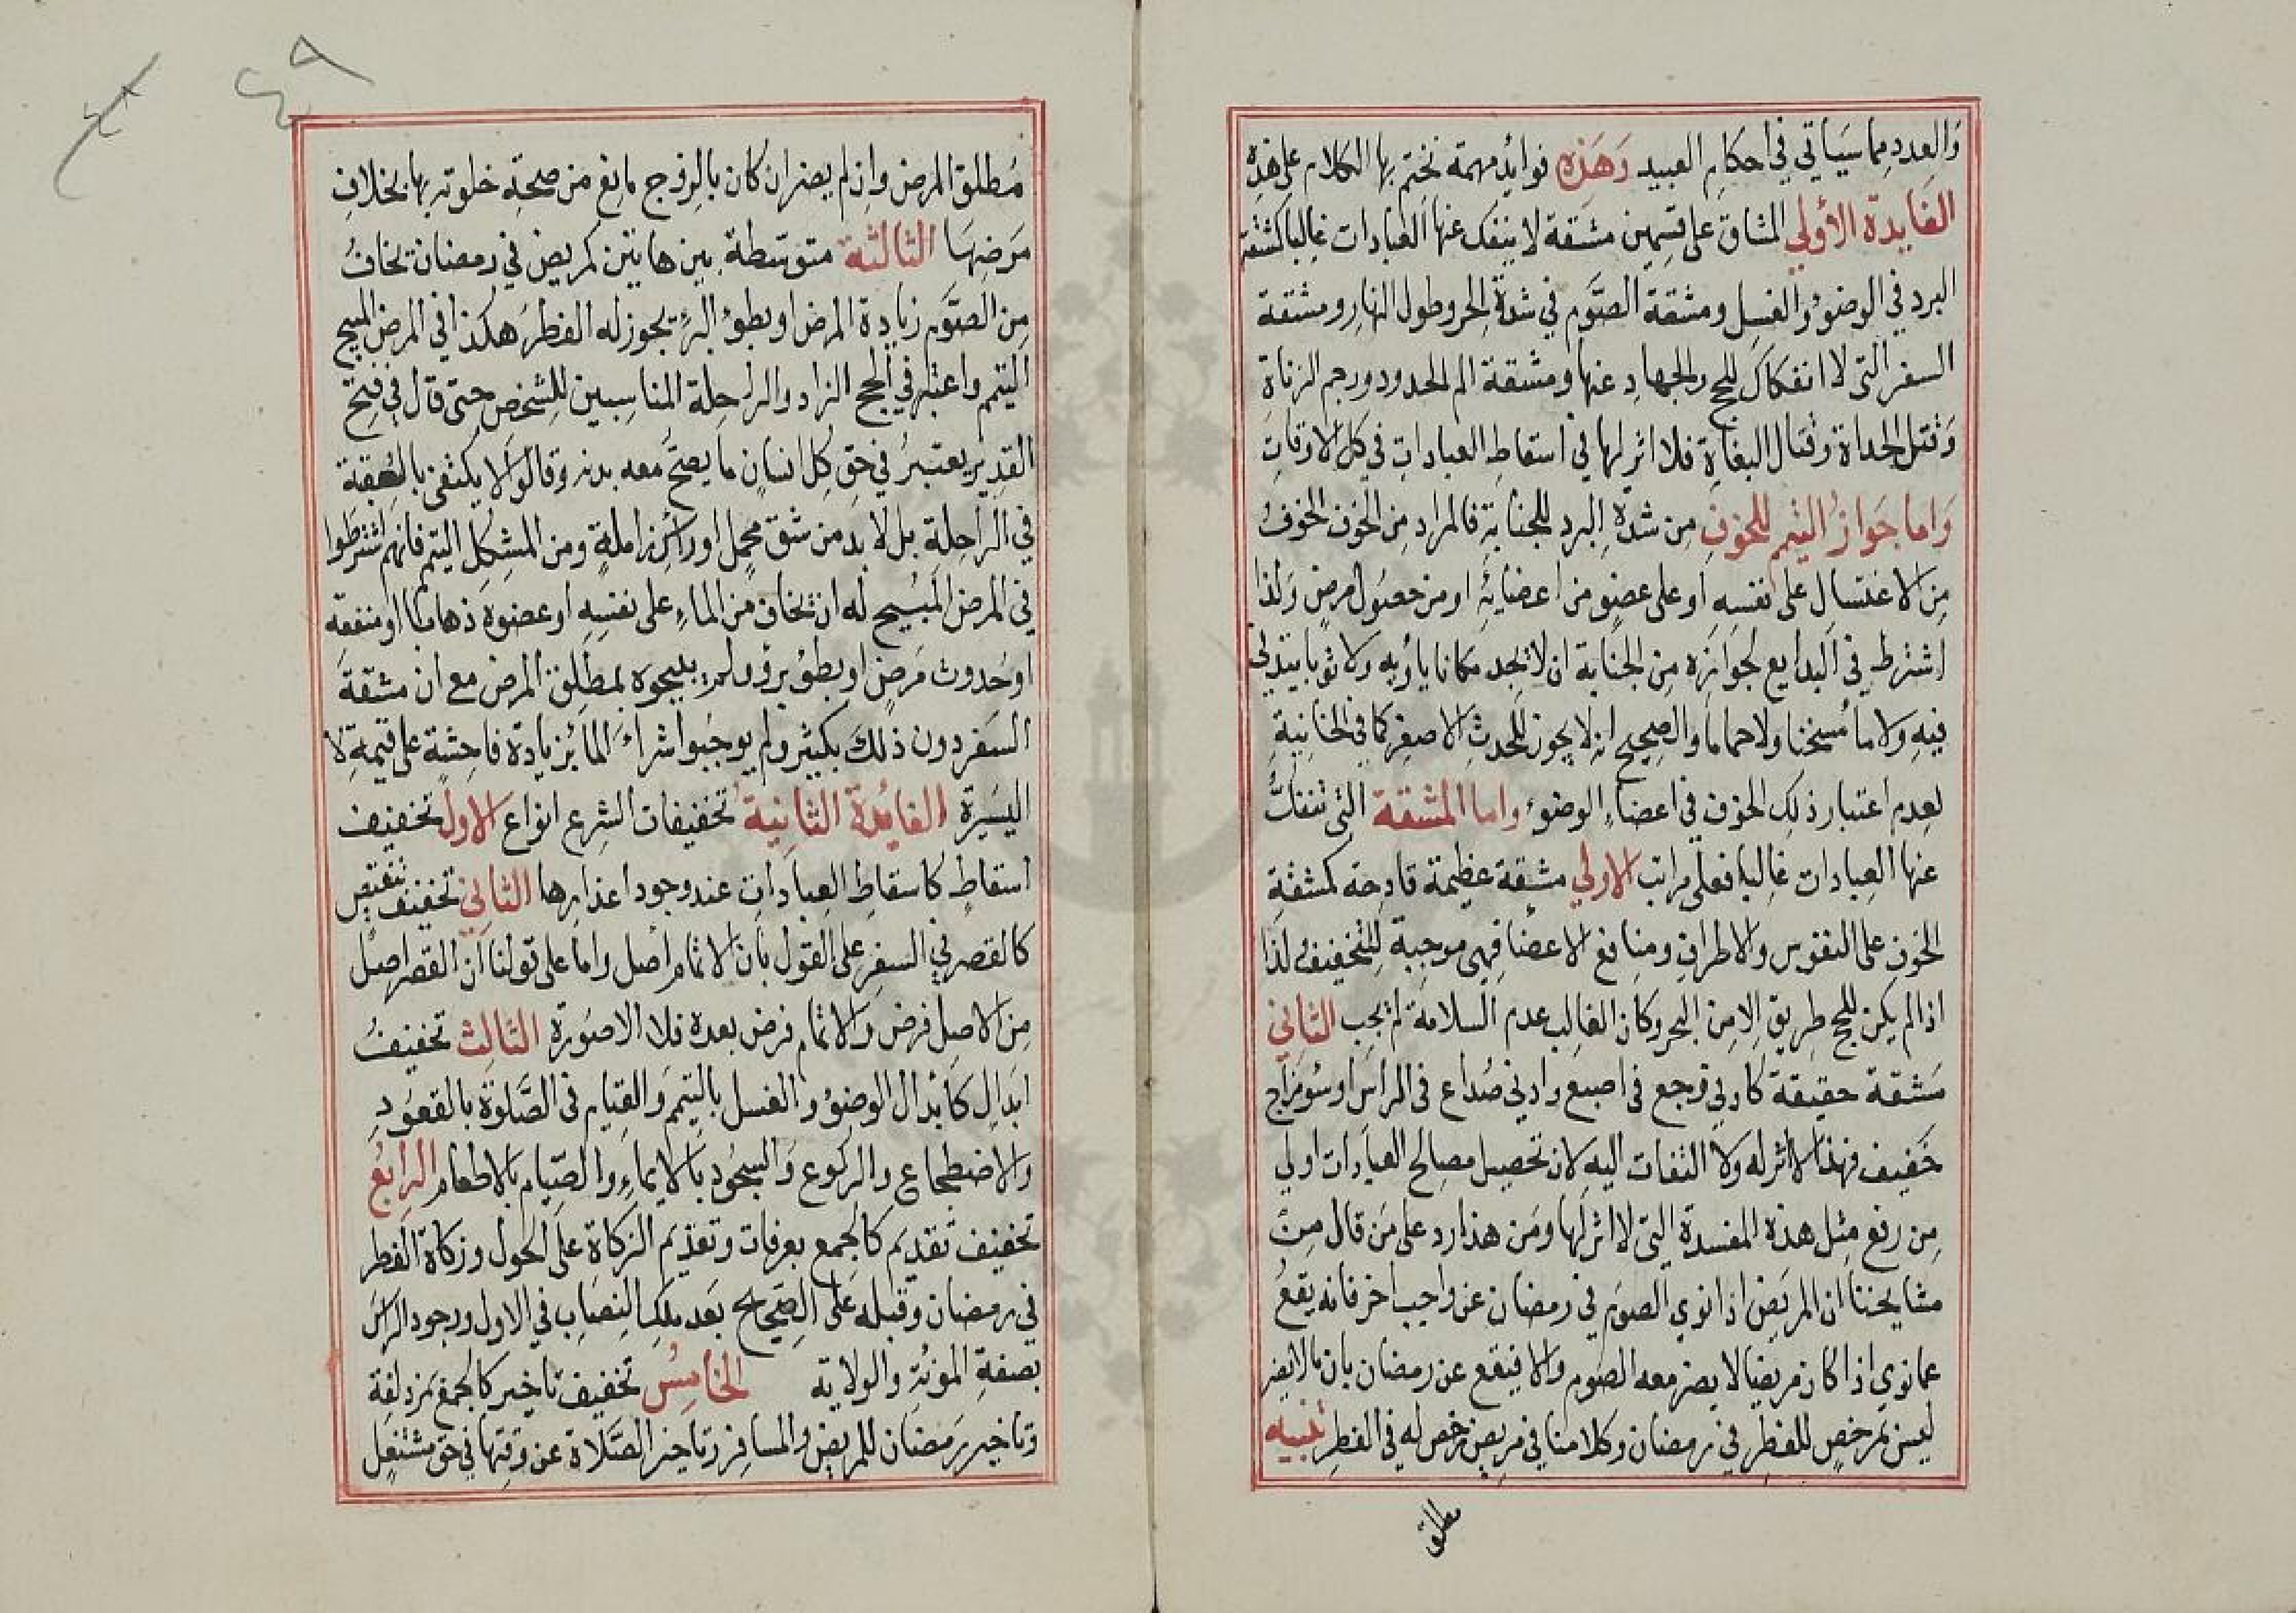 والعدد مما سيأتي في احكام العبيد وهذه فوائد مهمة نختم بها الكلام على هذه
الفايدة الأولي المشاق على قسمين مشقة لا ينفك عنها العبادات غالبا كمشقة
البرد في الوضوء والغسل ومشقة الصوم في شدة الحر وطول النهار ومشقة
السفر التي لا انفكاك للحج والجهاد عنها ومشقة الم الحدود ورجم الزناة
وقتل الجناة وقتال البغاة فلا اثر لها في اسقاط العبادات في كل الاوقات
واما جواز التيمم للخوف من شدة البرد للجنابة فالمراد من الخوف الخوف
من الاغتسال على نفسه او على عضو من اعضايه او من حصول مرض ولذا
اشترط في البدايع لجوازه من الجنابة ان لا يجد مكانا يأويه ولا ثوبا يتدفى
فيه ولا ماء مسخنا ولا حماما والصحيح انه لا يجوز للحدث الاصغر كما في الخانية
لعدم اعتبار ذلك الخوف في اعضاء الوضوء واما المشقة التي تنفك
عنها العبادات غالبا فعلى مراتب الاولي مشقة عظيمة قادحة كمشقة
الخوف على النفوس والاطراف ومنافع الاعضا فهي موجبة للتخفيف ولذا
اذا لم يكن للحج طريق الا من البحر وكان الغالب عدم السلامة لم يجب الثاني
مشقة حقيقة كادني وجع في اصبع وادني صداع في الراس او سؤ مزاج
خفيف فهذا لا اثر له ولا التفات اليه لان تحصيل مصالح العبادات اولي
من رفع مثل هذه المفسدة التي لا اثر لها ومن هذا رد على من قال من
مشايخنا ان المريض اذا نوي الصوم في رمضان عن واجب اخر فانه يقع
عما نوي اذا كان مريضا لا يضر معه الصوم والا فيقع عن رمضان بان مالا يضر
ليس بمرخص للفطر في رمضان وكلامنا في مريض رخص له في الفطر تنبيه
مطلق
مطلق المرض وان لم يضر ان كان بالزوج مانع من صحة خلوته بها بخلاف
مرضها الثالثة متوسطة بين هاتين كمريض في رمضان يخاف
من الصوم زيادة المرض او بطوء البرء يجوز له الفطر وهكذا في المرض المبيح
التيمم واعتبر في الحج الزاد والراحلة المناسبين للشخص حتى قال في فتح
القدير يعتبر في حق كل انسان ما يصح معه بدنه وقالوا لا يكتفى بالعقبة
في الراحلة بل لا بد من شق محمل او راس زاملة ومن المشكل التيمم فانهم اشترطوا
في المرض المبيح له ان يخاف من الماء على نفسه او عضوه ذهابا او منفعة
او حدوث مرض او بطؤ برؤ ولم يبيحوه بمطلق المرض مع ان مشقة
السفر دون ذلك بكثير ولم يوجبوا شراء الماء بزيادة فاحشة على قيمة لا
اليسيرة الفائدة الثانية تخفيفات الشرع انواع الاول تخفيف
اسقاط كاسقاط العبادات عند وجود اعذارها الثاني تخفيف تنقيص
كالقصر في السفر على القول بان الاتمام أصل واما على قولنا ان القصر اصل
من الاصل فرض والاتمام فرض بعده فلا الا صورة الثالث تخفيف
ابدال كابدال الوضوء والغسل بالتيمم والقيام في الصلوة بالقعود
والاضطجاع والركوع والسجود بالايماء والصيام بالاطعام الرابع
تخفيف تقديم كالجمع بعرفات وتقديم الزكاة على الحول وزكاة الفطر
في رمضان وقبله على الصحيح بعد ملك النصاب في الاول ووجود الراس
بصفة المونة والولاية الخامس تخفيف تاخير كالجمع بمزدلفة
وتاخير رمضان للمريض والمسافر وتاخير الصلاة عن وقتها في حق مشتغل